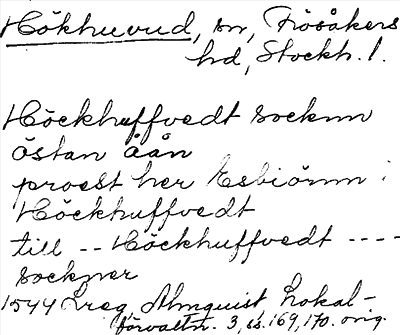 Hökhuvud, sn, Frösåkers
hd, Stockh. l.
Höckhuffvedt socknn
östan åån
proest her Esbiörnn i
Höckhuffvedt
till -- Höckhuffvedt ----
sockner
1544 Lreg. Almquist Lokal-
förvaltn. 3, ss. 169, 170. orig.